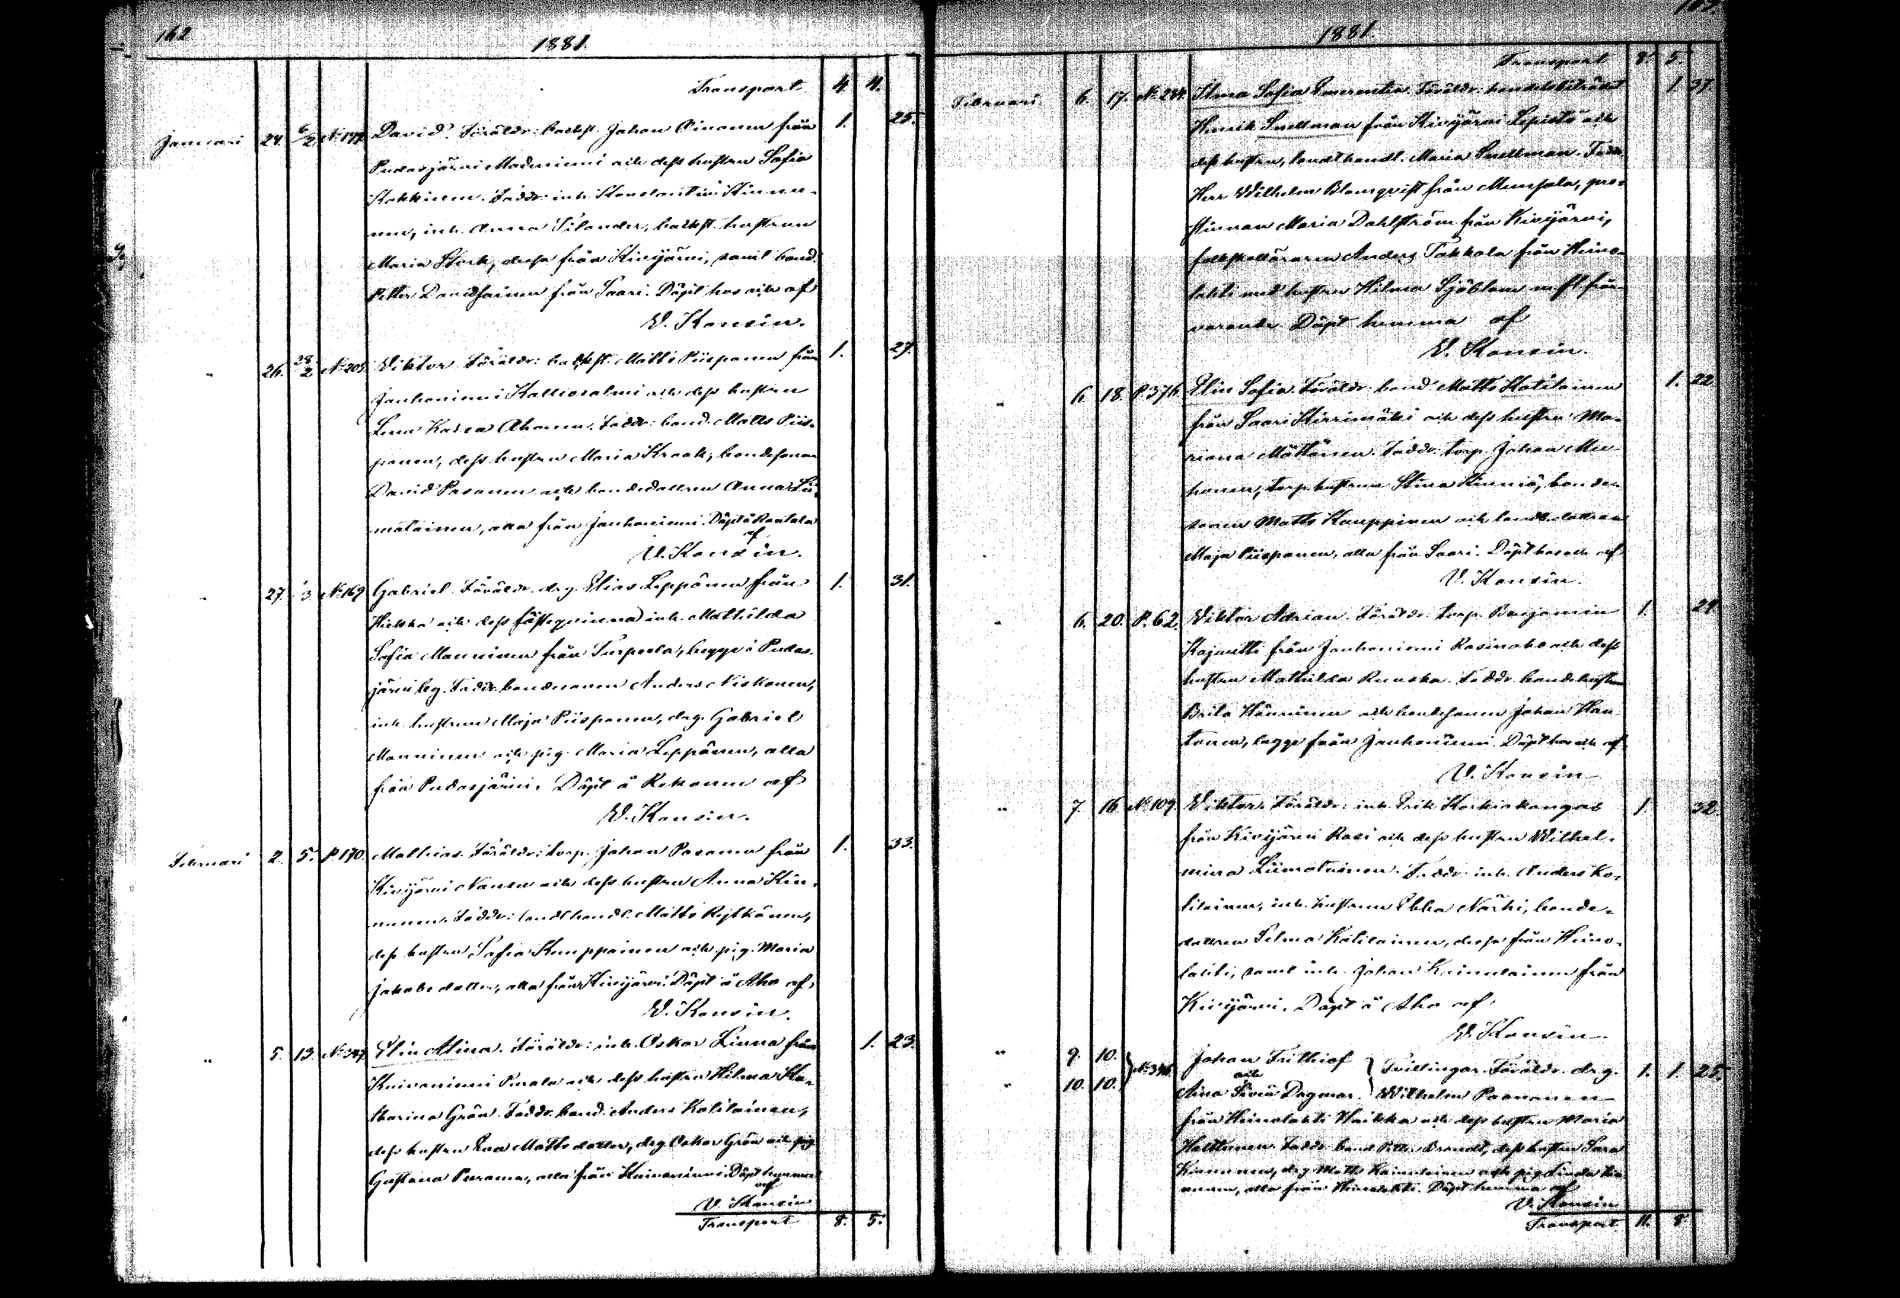 162
1881.
Transport. 4. 4.
Januari 24. 6/2 No 177. David. Föräldr: backst. Johan Ainonen från 1. 25.
Pudasjärvi Madeniemi och dess hustru Sofia
Kokkinen. Faddr: inh. Konstantin Kinnu-
nen, inh. Anna Tilander, backst. hustrun
Maria Stork, dessa från Kivijärvi, samt bond.
Petter Davidsainen från Saari. Döpt hos och af
V. Konsin.
" 26. 28/2 No 205. Viktor. Föräldr: backst. Matts Piispanen från 1. 27.
Janhoniemi Kalliosalmi och dess hustru
Lena Kaisa Ahonen. Faddr: bond. Matts Piis-
panen, dess hustru Maria Kraak, bondesonen
David Pasanen och bondedottren Anna Lii-
matainen, alla från Janhoniemi. Döpt å Rantala
af
V. Konsin.
" 27. /3 No 169 Gabriel. Föräldr. drg. Elias Leppänen från 1. 31.
Hiekka och dess fästeqvinna inh. Mathilda
Sofia Manninen från Turpeela, begge i Pudas-
järvi by. Faddr. bondesonen Anders Niskanen,
inh. hustrun Maja Piispanen, drg. Gabriel
Manninen och pig. Maria Leppänen, alla
från Pudasjärvi. Döpt å Rekonen af
V. Konsin.
Februari 2. 5. P 170. Mathias. Föräldr: torp. Johan Pasanen från 1. 33.
Kivijärvi Nanen och dess hustru Anna Kin-
nunen. Faddr: landthandl. Matts Rytkönen,
dess hustru Sofia Kumppainen och pig. Maria
Jakobsdotter, alla från Kivijärvi. Döpt å Aho af
V. Konsin.
" 5. 13. No 347 Elin Alina. Föräldr: inh. Oskar Linna från 1. 23.
Kuivaniemi Purala och dess hustru Hilma Ka-
tharina Grön. Faddr. bond. Anders Kotilainen,
dess hustru Eva Mattsdotter, drg. Oskar Grön och pig.
Gustava Puranen, alla från Kuivaniemi. Döpt hemma
af
V. Konsin
Transport 8. 5.
163.
1881.
Transport 8. 5.
Februari 6. 17. No 284. Ilma Sofia Emerentia. Föräldr: handelsbiträdet 1. 37.
Henrik Snellman från Kivijärvi Lepistö och
dess hustru, landthandl. Maria Snellman. Faddr.
Herr Wilhelm Blomqvist från Munsala, pro-
stinnan Maria Dahlström från Kivijärvi,
folkskolläraren Anders Takkala från Heino-
lahti med hustru Hilma Sjöblom m. fl. från-
varande. Döpt hemma af
V. Konsin.
" 6. 18. P. 376. Elin Sofia. Föräldr. bond. Matts Kotilainen 1. 22.
från Saari Kirrimäki och dess hustru Ma-
riana Möttönen. Faddr. torp. Johan Mu-
honen, torp. hustrun Stina Kinniä, bonde-
sonen Matts Kauppinen och bondedottren
Maja Piispanen, alla från Saari. Döpt hos och af
V. Konsin.
" 6. 20. P. 62. Viktor Adrian. Föräldr. torp. Benjamin 1. 29.
Kojmetti från Janhoniemi Rasinaho och dess
hustru Mathilda Runska. Faddr. bondehustrun
Brita Hänninen och bondesonen Johan Han-
tonen, begge från Janhoniemi. Döpt hos och af
V. Konsin
" 7. 16. No 109. Viktor. Föräldr: inh. Erik Korkiakangas 1. 32.
från Kivijärvi Rasi och dess hustru Wilhel-
mina Liimatainen. Faddr: inh. Anders Ko-
tilainen, inh. hustrun Ebba Närhi, bonde-
dottren Selma Kotilainen, dessa från Heino-
lahti, samt inh. Johan Kainulainen från
Kivijärvi. Döpt å Aho af
V. Konsin
" 9. 10. Johan Frithiof
och } Tvillingar. Föräldr. drg. 1. 1. 25.
" 10. 10. Aina Sivia Dagmar. Wilhelm Paananen
från Heinolahti Haikka och dess hustru Maria
Halttunen. Faddr. bond. Petter Brandt, dess hustru Sara
Kinnunen, drg. Matts Kainulainen och pig. Linda Kin-
nunen, alla från Heinolahti. Döpt hemma af
V. Konsin
Transport 11. 8.